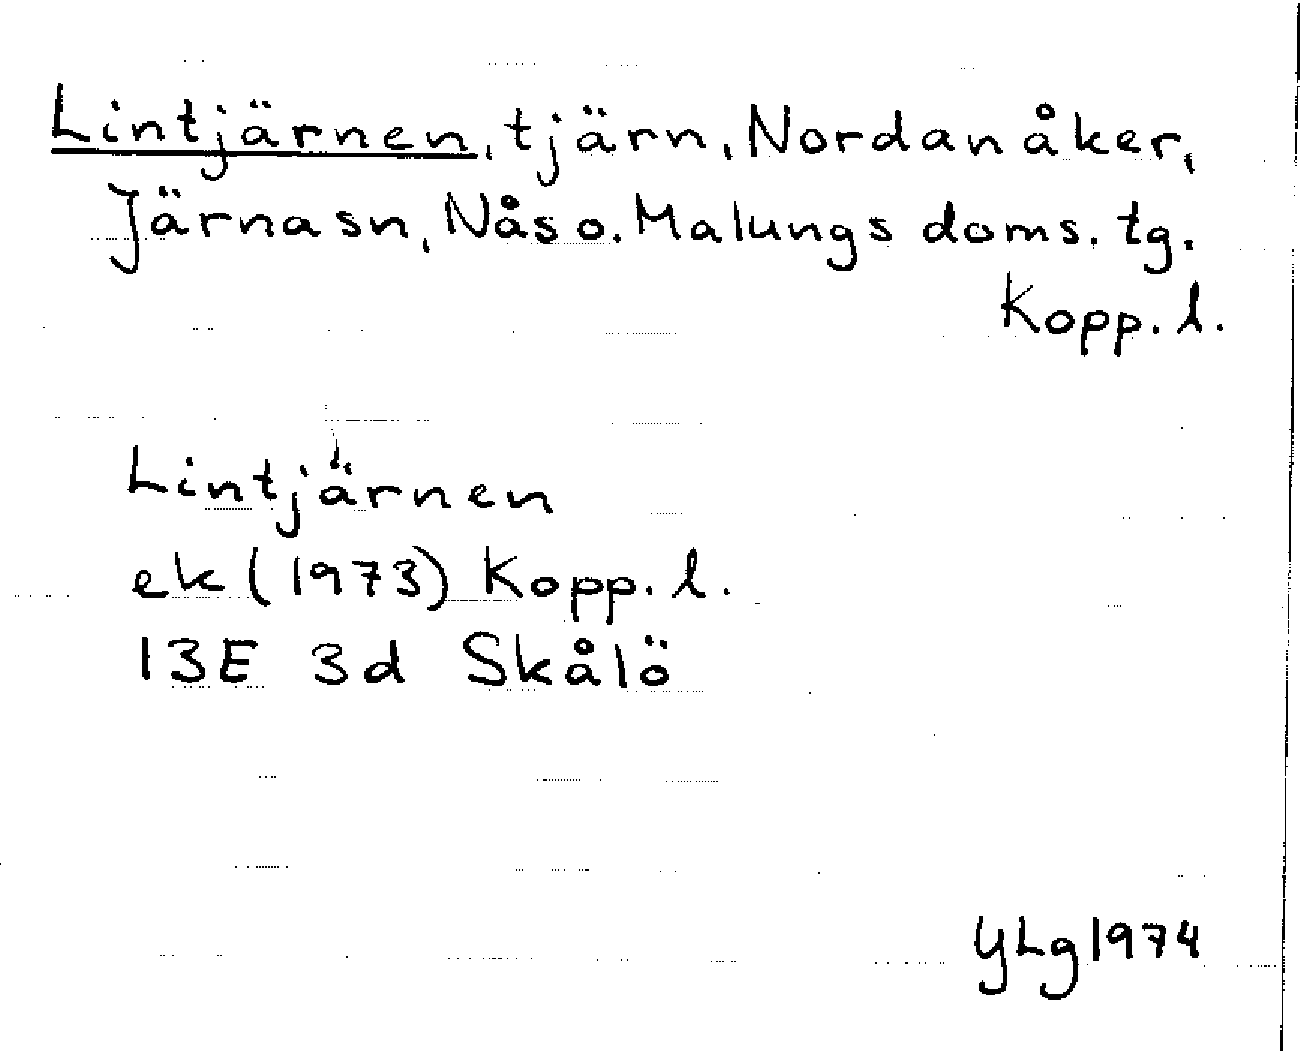 Lintjärnen, tjärn, Nordanåker,
Järna sn, Nås o. Malungs doms. tg.
Kopp. l.
Lintjärnen
ek (1973) Kopp. l.
13E 3d Skålö
YLg 1974